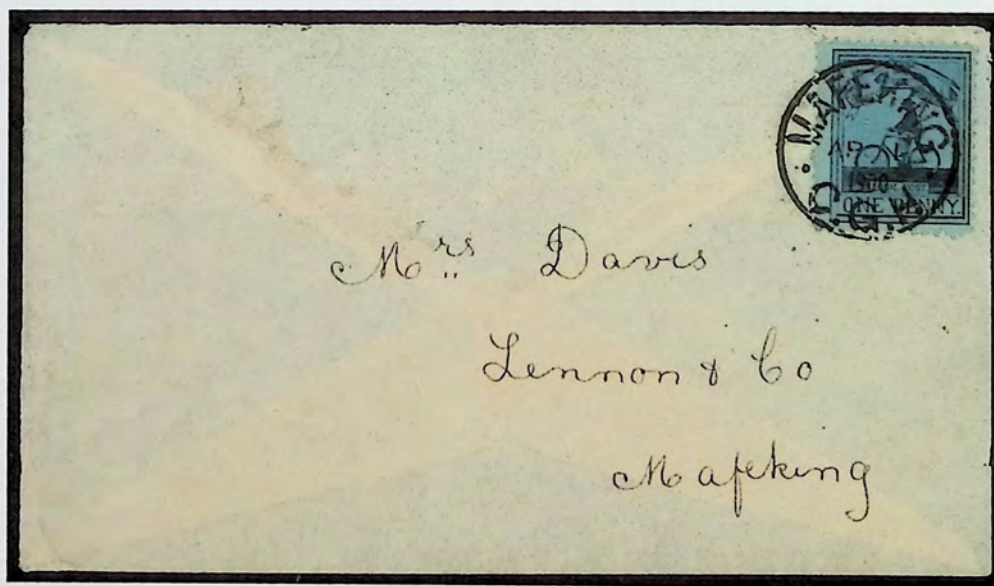 MAFEKING
AP
1900
C.G.H.
ONE PENNY
Mrs Davis
Lennon & Co
Mafeking